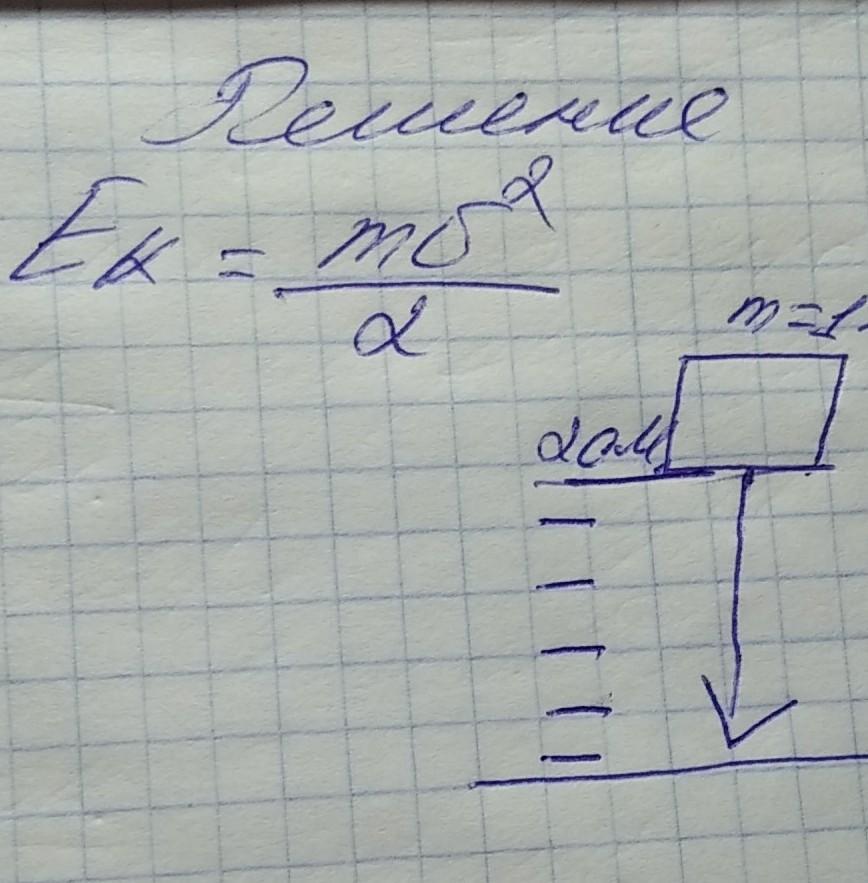 Решение
Eк = mυ²
2
m=1
20м